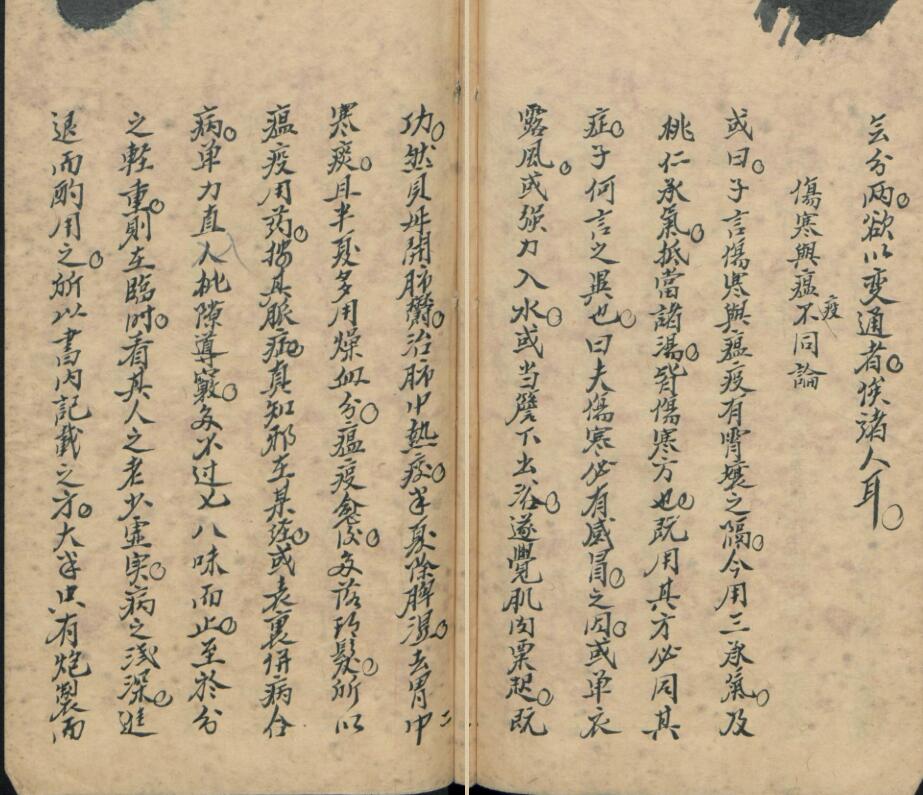 无分两欲以变通者俟諸人耳
傷寒與瘟疫不同論
或曰子言傷寒與瘟疫有霄壤之隔今用三承氣及
桃仁承氣抵當諸湯皆傷寒方也既用其方必同其
症子何言之異也曰夫傷寒必有感冒之因或单衣
露風或强力入水或当簷下出浴遂覺肌肉粟起既
功然貝母開肺鬱治肺中熱痰半夏除脾湿去胃中
寒痰且半夏多用燥血分瘟疫愈後多落頭髮所以
瘟疫用药揣其脈症真知邪在某経或表裏併病合
病单刀直入批隙導竅多不过七八味而止至於分
之軽重則在臨时看其人之老少虚实病之浅深進
退而酌用之所以書内記載之方大半只有炮製而